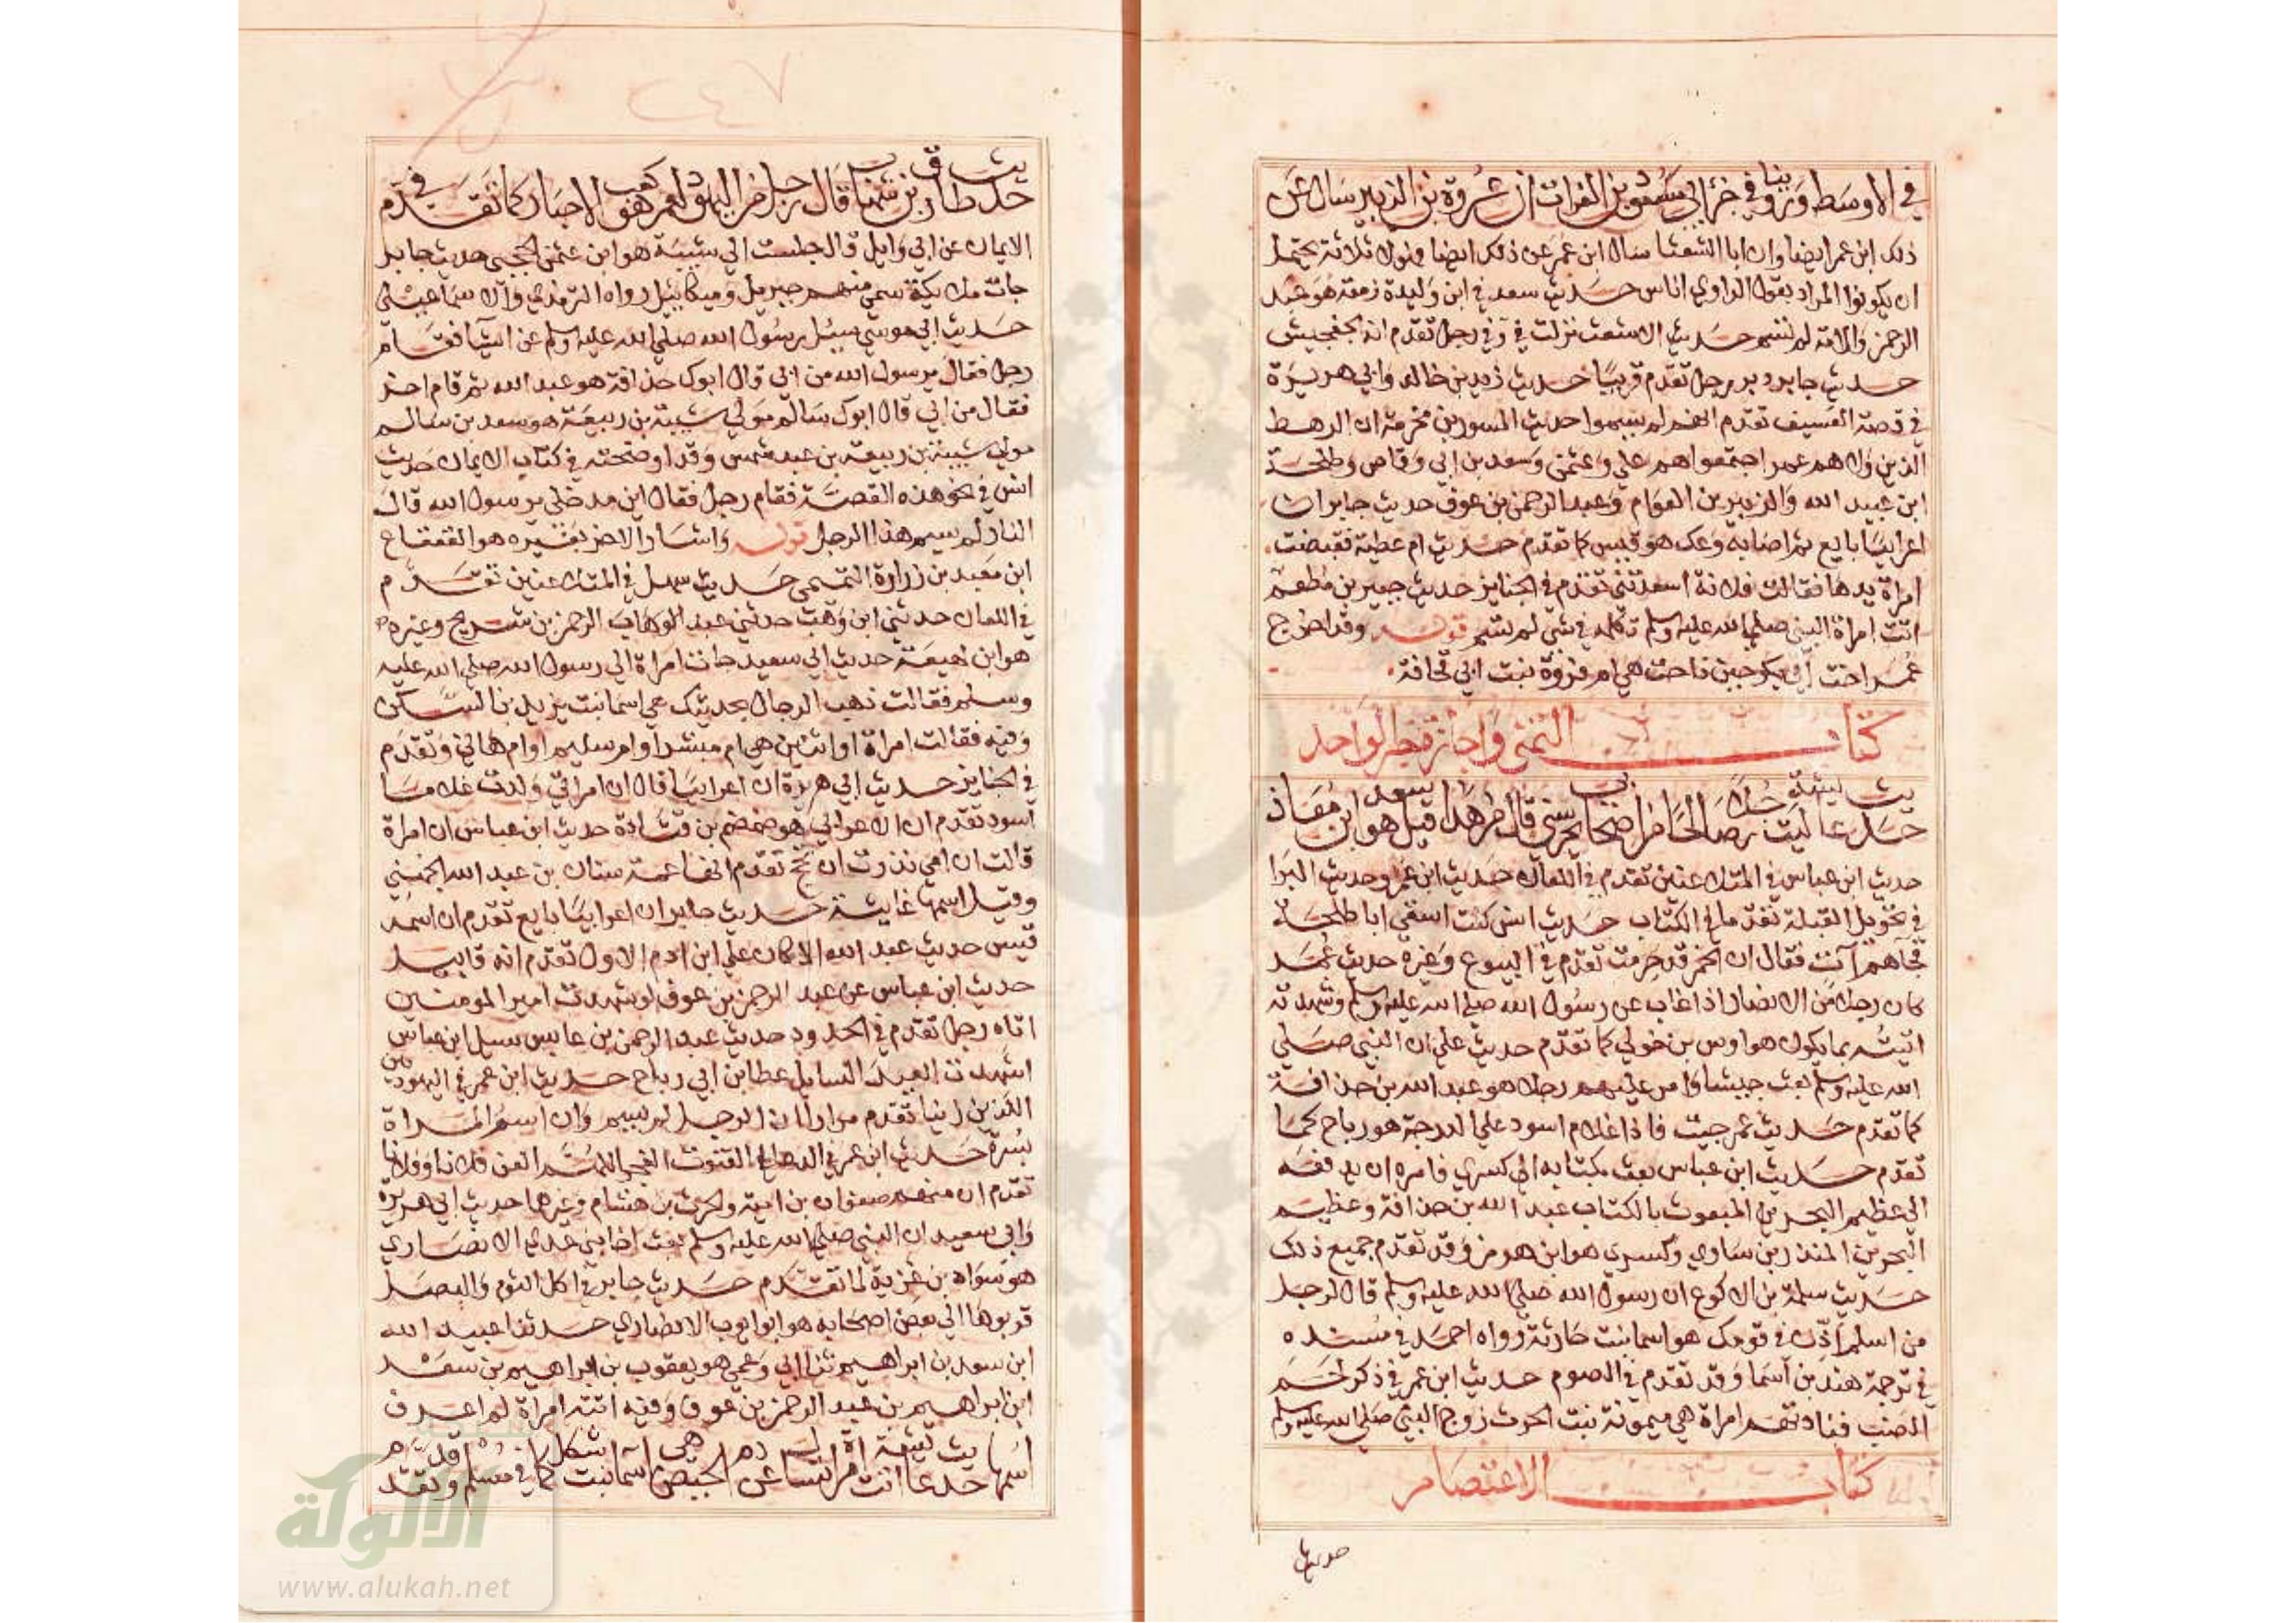 في الاوسط وروينا في جزء ابي مسعود بن الفرات ان عروة بن الزبير سال عن
ذلك ابن عمر ايضا وان ابا الشعثا سال ابن عمر عن ذلك ايضا فهولاء ثلاثة يحتمل
ان يكونوا المراد بقول الراوي اناس حديث سعد في ابن وليدة زمعة هو عبد
الرحمن والامة لم تسم حديث الاشعث نزلت في وفي رجل تقدم انه الجفشيش
حديث جابر دبر رجل تقدم قريبا حديث زيد بن خالد وابي هريرة
في قصة العسيف تقدم انهم لم يسموا حديث المسور بن مخرمة ان الرهط
الذين ولاهم عمر اجتمعوا هم علي وعثمن وسعد بن ابي وقاص وطلحة
ابن عبيد الله والزبير بن العوام وعبد الرحمن بن عوف حديث جابر ان
اعرابيا بايع ثم اصابه وعك هو قيس كما تقدم حديث ام عطية فقبضت
امراة يدها فقالت فلانة اسعدتني تقدم في الجنايز حديث جبير بن مطعم
اتت امراة النبي صلى الله عليه وسلم تكلمه في شي لم تسم قوله وقد اخرج
عمر اخت ابي بكر حين ناحت هي ام فروة بنت ابي قحافة
كتاب التمني واجازة خبر الواحد
حديث عايشة ليت رجلا صالحا من اصحابي يحرسني قال من هذا قيل سعد هو ابن معاذ
حديث ابن عباس في المتلاعنين تقدم في اللعان حديث ابن عمر وحديث البرا
في تحويل القبلة تقدما في الكتاب حديث انس كنت اسقي ابا طلحة
فجاهم آت فقال ان الخمر قد حرمت تقدم في البيوع وغيره حديث عمر
كان رجل من الانصار اذا غاب عن رسول الله صلى الله عليه وسلم وشهدته
اتيته بما يكون هو اوس بن خولي كما تقدم حديث علي ان النبي صلى
الله عليه وسلم بعث جيشا وامر عليهم رجلا هو عبد الله بن حذافة
كما تقدم حديث عمر جيت فاذا غلام اسود علي الدرجة هو رباح كما
تقدم حديث ابن عباس بعث بكتابه الى كسري فامره ان يدفعه
الى عظيم البحرين المبعوث بالكتاب عبد الله بن حذافة وعظيم
البحرين المنذر بن ساوي وكسري هو ابن هرمز وقد تقدم جميع ذلك
حديث سلمة بن الاكوع ان رسول الله صلى الله عليه وسلم قال لرجل
من اسلم اذن في قومك هو اسما بنت حارثة رواه احمد في مسنده
في ترجمة هند بن اسما وقد تقدم في الصوم حديث ابن عمر في ذكر لحم
الضب فنادتهم امراة هي ميمونة بنت الحرث زوج النبي صلى الله عليه وسلم
كتاب الاعتصام
حديث
٢٤٧
حديث طارق بن شهاب قال رجل من اليهود لعمر هو كعب الاحبار كما تقدم في
الايمان عن ابي وايل قال جلست الي شيبة هو ابن عثمن الحجبي حديث جابر
جات ملايكة سمي منهم جبريل وميكاييل رواه الترمذي والاسماعيلي
حديث ابي موسي سيل رسول الله صلى الله عليه وسلم عن اشيا فقام
رجل فقال يرسول الله من ابي قال ابوك حذافة هو عبد الله ثم قام اخر
فقال من ابي قال ابوك سالم مولي شيبة بن ربيعة هو سعد بن سالم
مولي شيبة بن ربيعة بن عبد شمس وقد اوضحته في كتاب الايمان حديث
انس في نحو هذه القصة فقام رجل فقال اين مدخلي يرسول الله قال
النار لم يسم هذا الرجل قوله واشار الاخر بغيره هو القعقاع
ابن معبد بن زرارة التميمي حديث سهل في المتلاعنين تقدم
في اللعان حدثني ابن وهب حدثني عبد الرحمن بن شريح وغيره
هو ابن لهيعة حديث ابي سعيد جات امراة الي رسول الله صلى الله عليه
وسلم فقالت ذهب الرجال بحديثك هي اسما بنت يزيد بن السكن
وفيه فقالت امراة او اثنين هي ام مبشر او ام سليم او ام هاني وتقدم
في الجنايز حديث ابي هريرة ان اعرابيا قال ان امراتي ولدت غلاما
اسود تقدم ان الاعرابي هو ضمضم بن قتادة حديث ابن عباس ان امراة
قالت ان امي نذرت ان تحج تقدم انها عمة سنان بن عبد الله الجهني
وقيل اسمها غايثة حديث جابر ان اعرابيا بايع تقدم ان اسمه
قيس حديث عبد الله الا كان علي ابن ادم الاول تقدم انه قابيل
حديث ابن عباس عن عبد الرحمن بن عوف لو شهدت امير المومنين
اتاه رجل تقدم في الحدود حديث عبد الرحمن بن عابس سيل ابن عباس
اشهدت العيد السايل عطا بن ابي رباح حديث ابن عمر في اليهوديين
اللذين زنيا تقدم مرارا ان الرجل لم يسم وان اسم المراة
بسرة حديث ابن عمر في الدعا في القنوت في الفجر اللهم العن فلانا وفلانا
تقدم ان منهم صفوان بن امية والحرث بن هشام وغيرها حديث ابي هريرة
وابي سعيد ان النبي صلى الله عليه وسلم بعث اخا بني عدي الانصاري
هو سواد بن غزية لما تقدم حديث جابر في اكل الثوم والبصل
قربوها الي بعض اصحابه هو ابو ايوب الانصاري حدثنا عبيد الله
ابن سعد بن ابراهيم ثنا ابي وعمي هو يعقوب بن ابراهيم بن سعد
ابن ابراهيم بن عبد الرحمن بن عوف وفيه اتته امراة لم اعرف
اسمها حديث عايشة اتت امراة تسال عن دم الحيض هي اسما بنت شكل كما في مسلم وقد تقدم
الألوكة
www.alukah.net